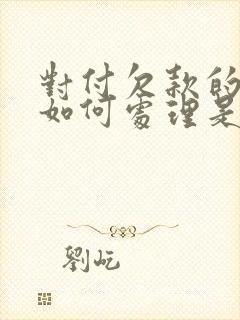 對付欠款的
如何處理是
劉屹